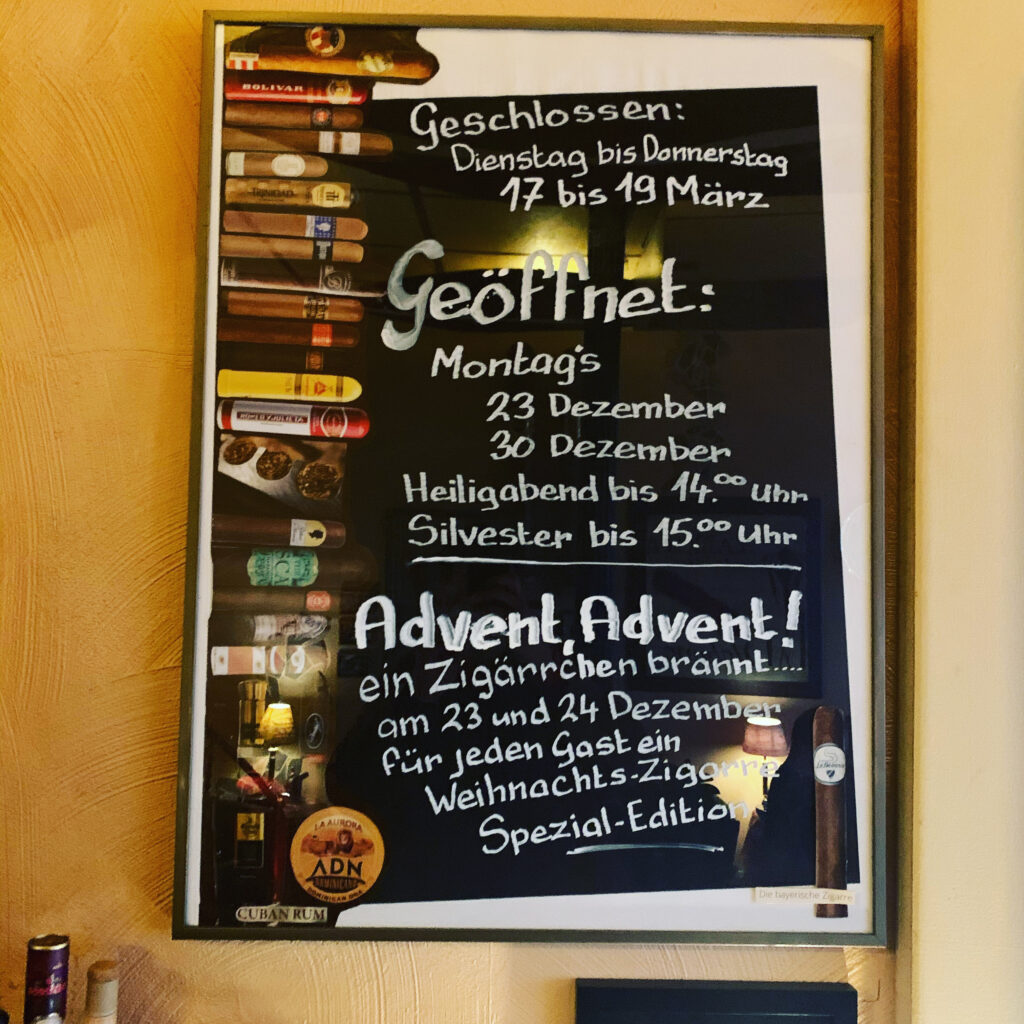 Geschlossen:
Dienstag bis Donnerstag
17 bis 19 März
Geöffnet:
Montag's
23 Dezember
30 Dezember
Heiligabend bis 14.00 Uhr
Silvester bis 15.00 Uhr
Advent, Advent!
ein Zigärrchen brännt....
am 23 und 24 Dezember
für jeden Gast ein
Weihnachts-Zigarre
Spezial-Edition
BOLIVAR
TRINIDAD
LA AURORA
ADN
DOMINICANO
CUBAN RUM
Die bayerische Zigarre